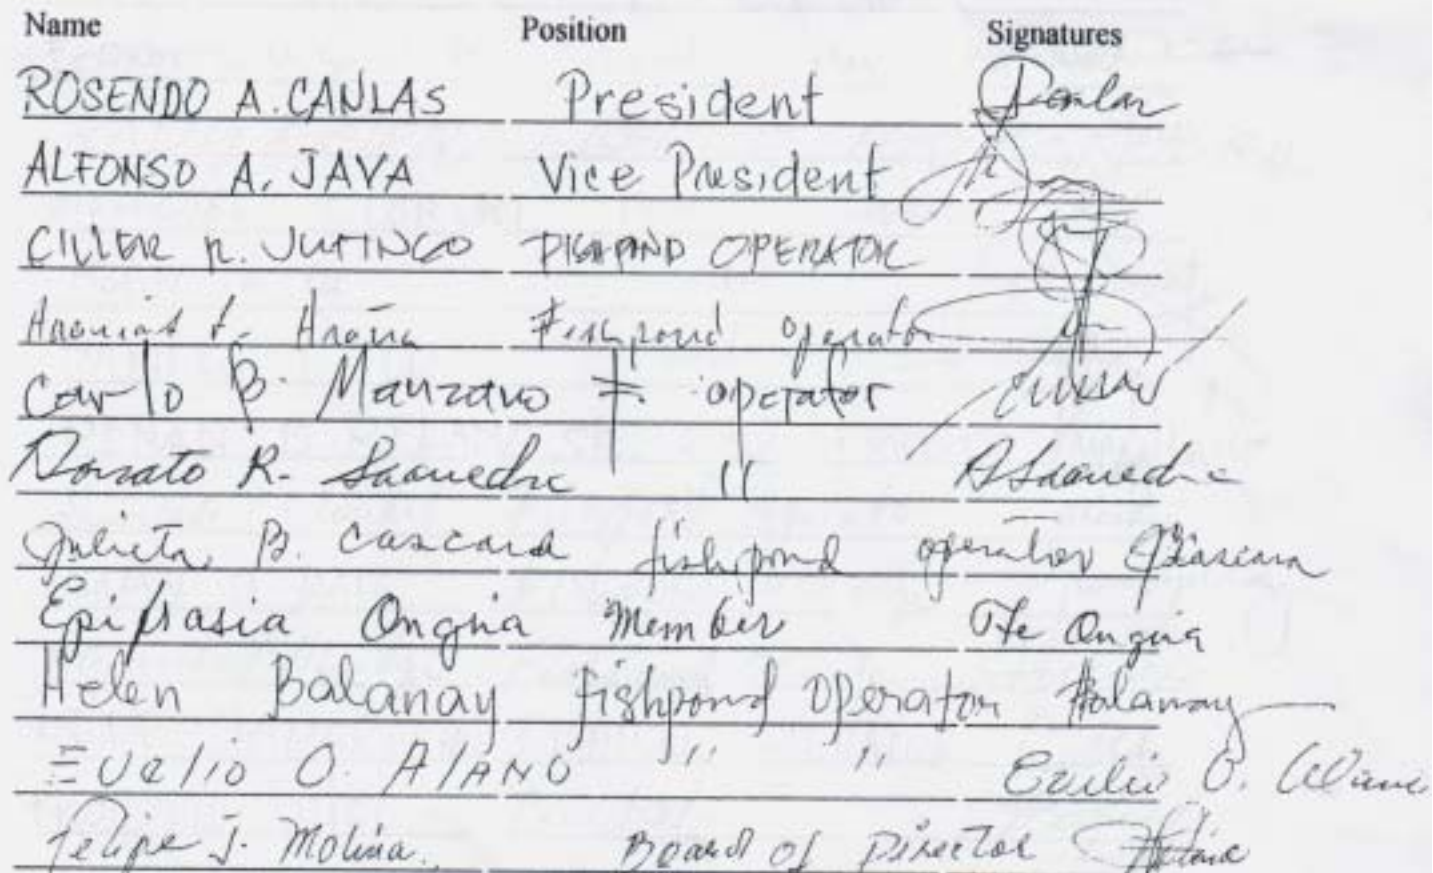 Name Position Signatures
ROSENDO A. CANLAS President
ALFONSO A. JAVA Vice President
OPERATOR
Fishpond operator
Carlo B. Manzano F. operator
Donato R. Saavedra " ASaavedra
Julieta B. Cascara fishpond operator
Epifrasia Ongria Member Ongria
Helen Balanay Fishpond Operator HBalanay
Evelio O. Alano " " Evelio O. Alano
Felipe J. Molina. Board of Director